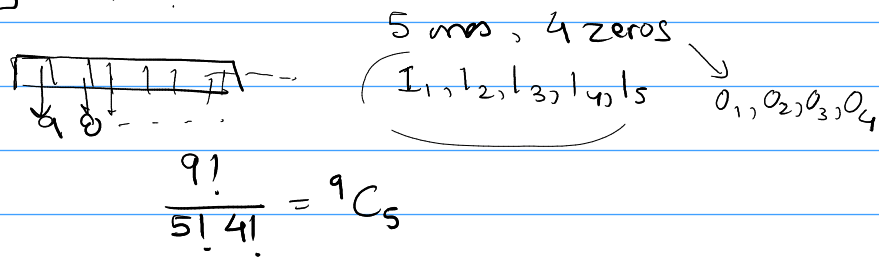 5 ones, 4 zeros
1₁, 1₂, 1₃, 1₄, 1₅
0₁, 0₂, 0₃, 0₄
9 8 - - - - -
9! / 5! 4! = ⁹C₅